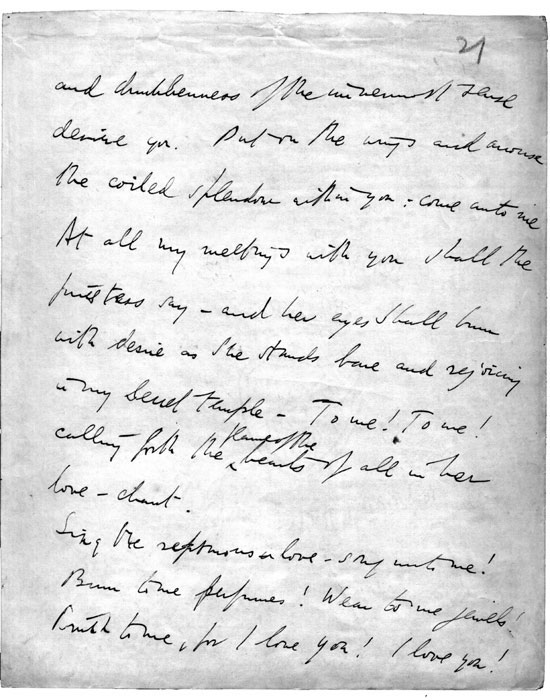 21
and drunkenness of the innermost sense
desire you. Put on the wings and arouse
the coiled splendour within you: come unto me
At all my meetings with you shall the
priestess say – and her eyes shall burn
with desire as she stands bare and rejoicing
in my secret temple – To me! To me!
flame of the
calling forth the hearts of all in her
love-chant.
Sing the rapturous love-song unto me!
Burn to me perfumes! Wear to me jewels!
Drink to me, for I love you! I love you!